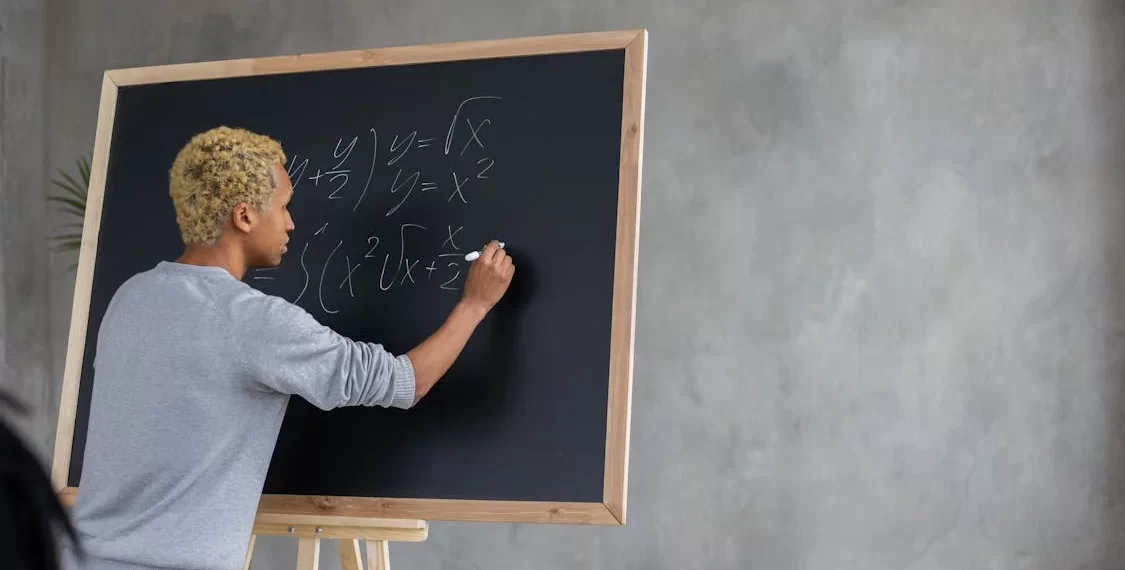 y + y/2) y = √x
y = x²
= ∫ (x² √x + x/2